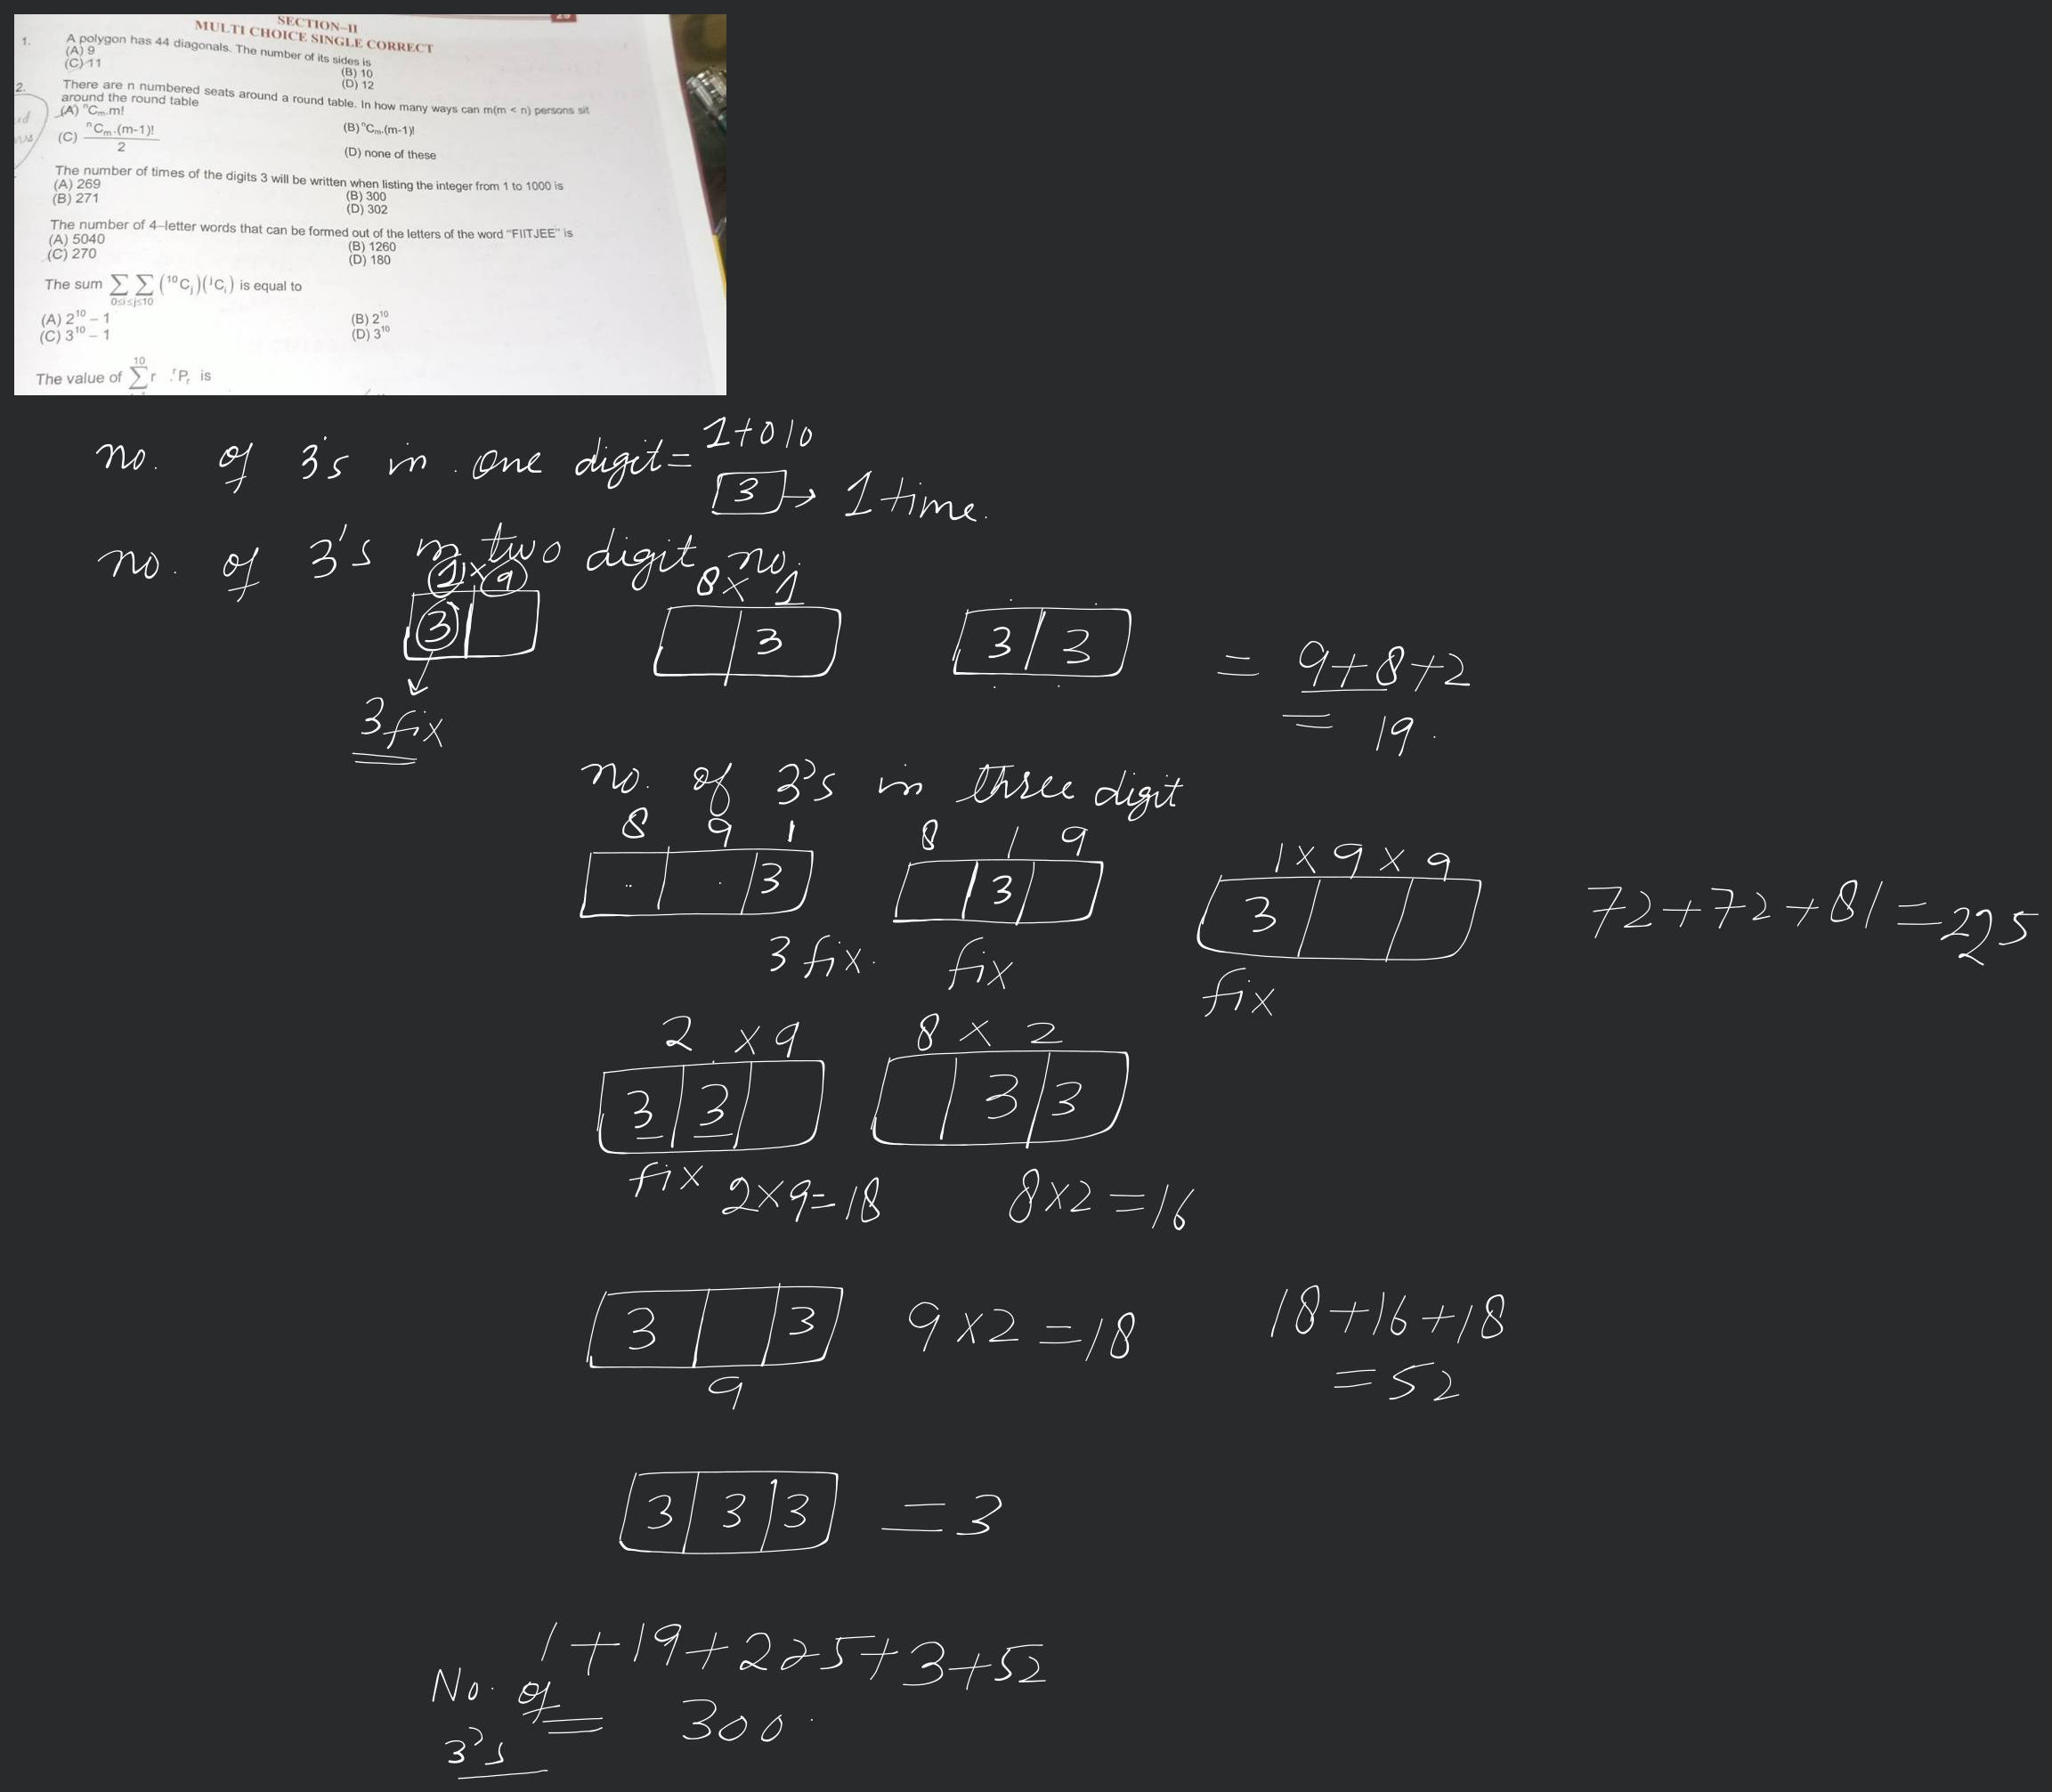 29
SECTION–II
MULTI CHOICE SINGLE CORRECT
1. A polygon has 44 diagonals. The number of its sides is
(A) 9 (B) 10
(C) 11 (D) 12
2. There are n numbered seats around a round table. In how many ways can m(m < n) persons sit
around the round table
(A) ⁿCₘ.m! (B) ⁿCₘ.(m-1)!
(C) ⁿCₘ.(m-1)! / 2 (D) none of these
The number of times of the digits 3 will be written when listing the integer from 1 to 1000 is
(A) 269 (B) 300
(B) 271 (D) 302
The number of 4–letter words that can be formed out of the letters of the word "FIITJEE" is
(A) 5040 (B) 1260
(C) 270 (D) 180
The sum ∑∑ 0≤i≤j≤10 (¹⁰Cⱼ)(ʲCᵢ) is equal to
(A) 2¹⁰ – 1 (B) 2¹⁰
(C) 3¹⁰ – 1 (D) 3¹⁰
The value of 10 ∑ r .ʳPᵣ is
no. of 3's in one digit = 1 to 10
3 → 1 time.
no. of 3's in two digit no.
1 × 9 8 × 1
3 3 3 3 = 9+8+2
3 fix = 19.
no. of 3's in three digit
8 9 1 8 1 9 1 × 9 × 9
3 3 3 72+72+81=225
3 fix. fix fix
2 × 9 8 × 2
3 3 3 3
fix 2×9=18 8×2=16
3 3 9×2=18 18+16+18
9 =52
3 3 3 = 3
1+19+225+3+52
No. of 3's = 300.